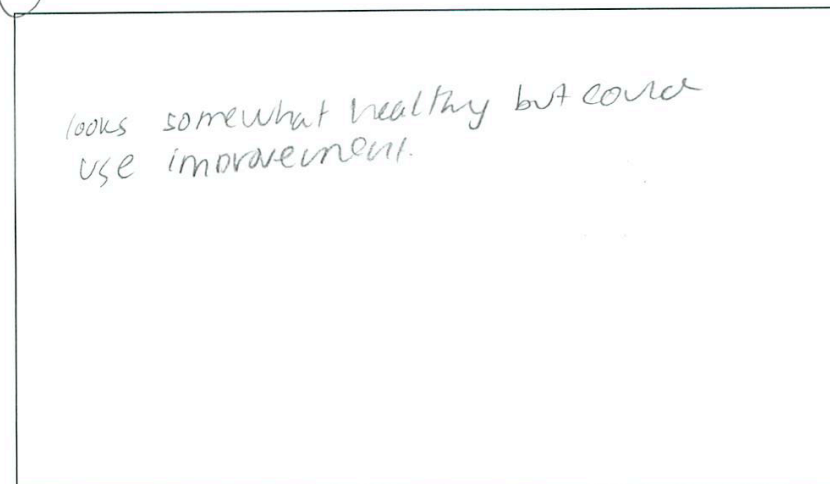 looks somewhat healthy but could
use improvement.